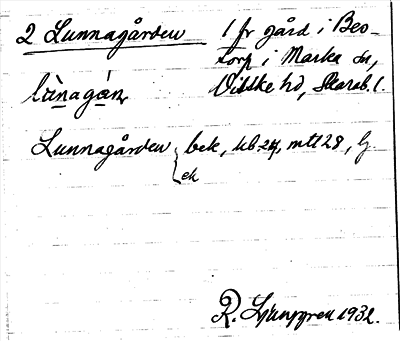 2 Lunnagården 1 fr gård i Beo-
torp i Marka sn,
lùnagán, Vilske hd, Skarab. l.
Lunnagården bek, hb 24, mtl 28, Lj
ek
R. Ljunggren 1932.